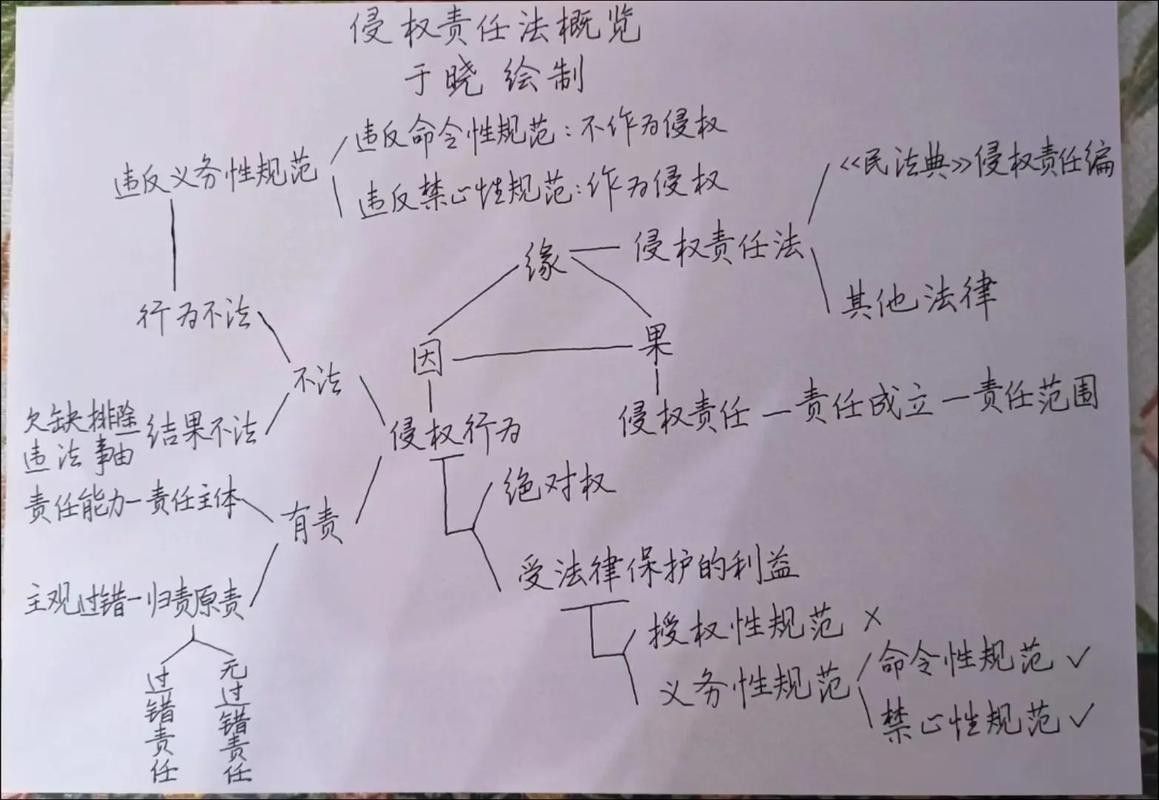 侵权责任法概览
于晓 绘制
违反义务性规范
违反命令性规范：不作为侵权
违反禁心性规范：作为侵权
《民法典》侵权责任编
缘
侵权责任法
其他法律
行为不法
因
果
不法
侵权责任—责任成立—责任范围
欠缺排除
违法事由
结果不法
侵权行为
责任能力—责任主体
有责
绝对权
受法律保护的利益
主观过错—归责原责
授权性规范 ×
义务性规范
命令性规范 ✓
禁心性规范 ✓
过错责任
无过错责任